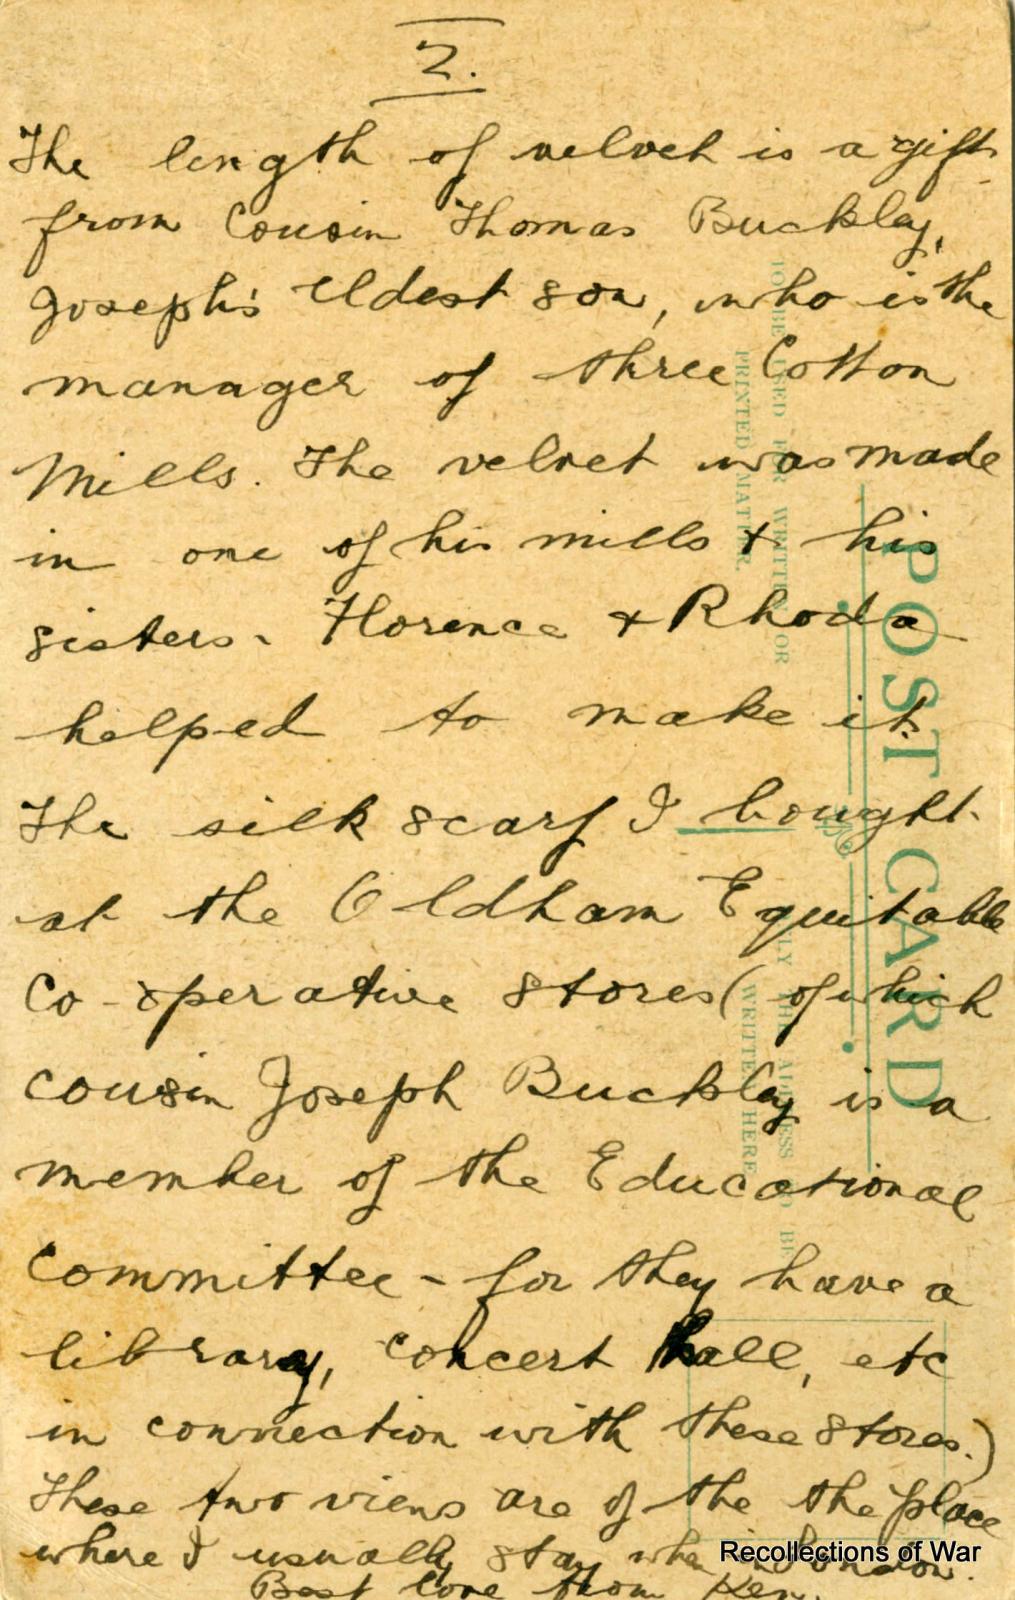 2.
The length of velvet is a gift
from Cousin Thomas Buckley,
Joseph's Eldest son, who is the
manager of three Cotton
Mills. The velvet was made
in one of his mills & his
sisters - Florence & Rhoda
helped to make it.
The silk scarf I bought
at the Oldham Equitable
Co-operative Stores (of which
cousin Joseph Buckley is a
member of the Educational
Committee - for they have a
library, concert hall, etc
in connection with these stores.)
These two views are of the the place
where I usually stay when in London.
Best love from Ken.
POST CARD
TO BE USED FOR WRITTEN OR
PRINTED MATTER.
ONLY THE ADDRESS TO BE
WRITTEN HERE
Recollections of War